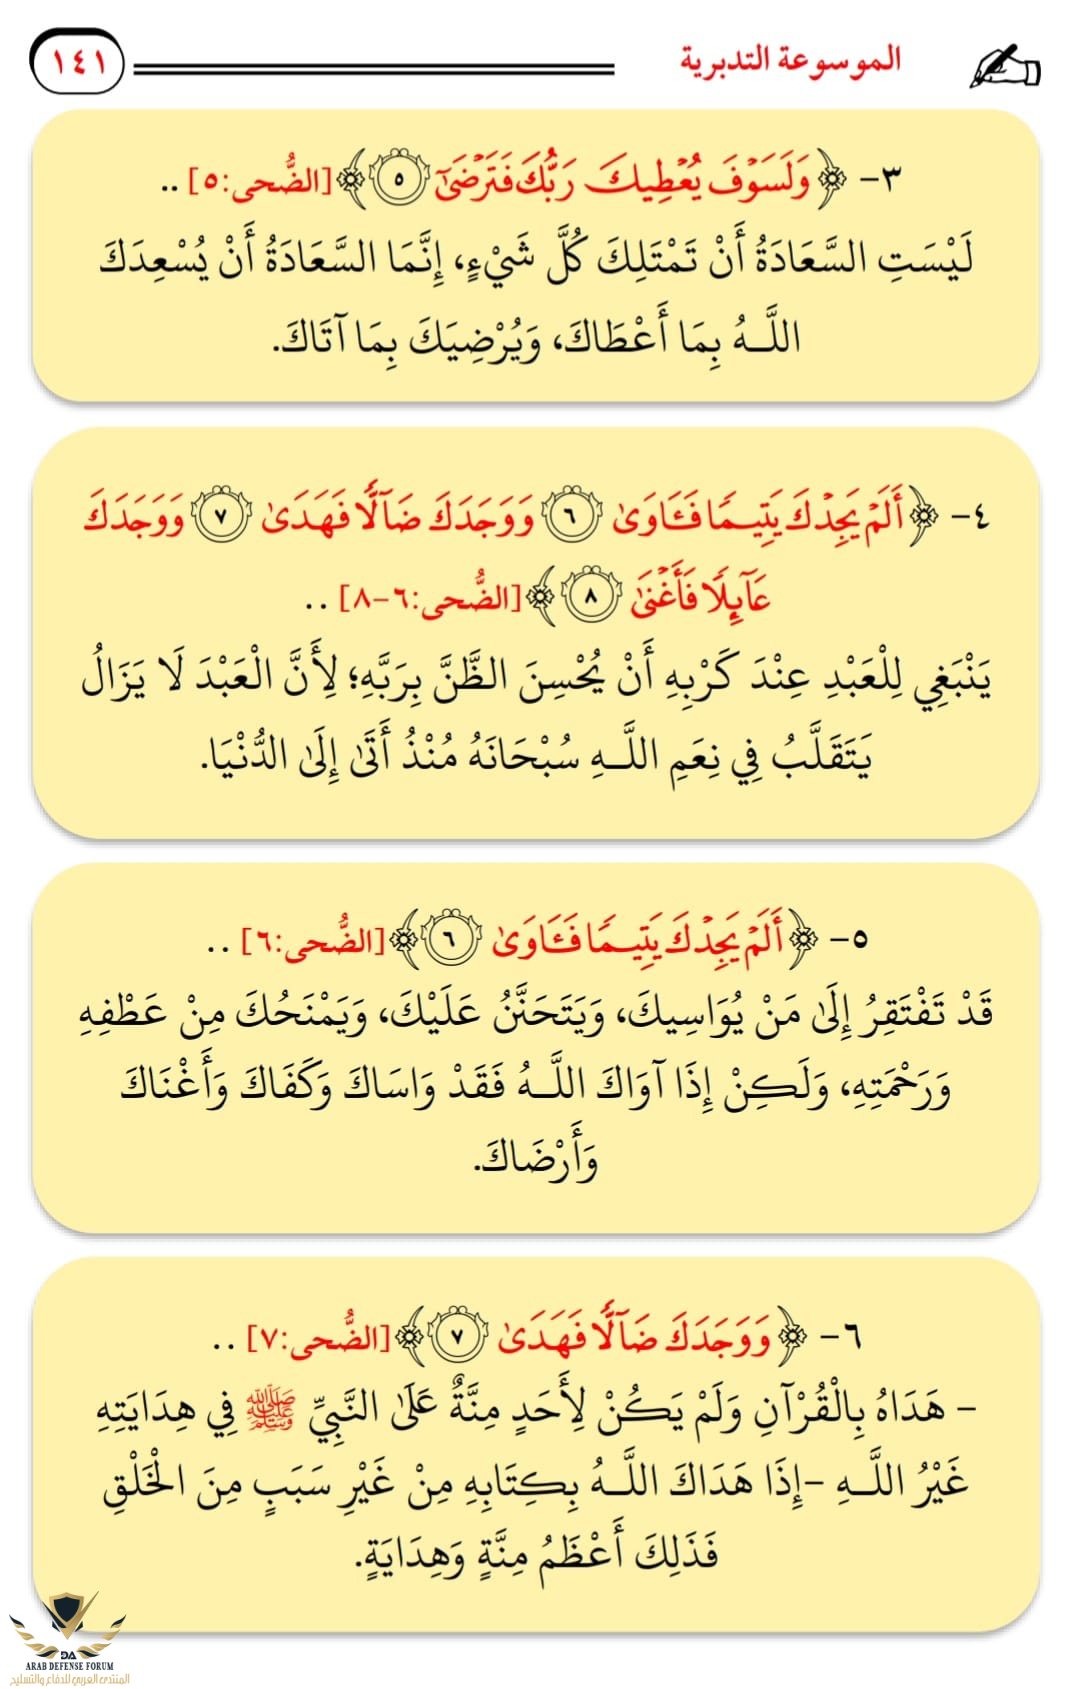 الموسوعة التدبرية
١٤١
٣- ﴿وَلَسَوۡفَ يُعۡطِيكَ رَبُّكَ فَتَرۡضَىٰٓ ٥﴾ [الضُّحى:٥] ..
لَيْسَتِ السَّعَادَةُ أَنْ تَمْتَلِكَ كُلَّ شَيْءٍ، إِنَّمَا السَّعَادَةُ أَنْ يُسْعِدَكَ
اللَّـهُ بِمَا أَعْطَاكَ، وَيُرْضِيَكَ بِمَا آتَاكَ.
٤- ﴿أَلَمۡ يَجِدۡكَ يَتِيمٗا فَـَٔاوَىٰ ٦ وَوَجَدَكَ ضَآلّٗا فَهَدَىٰ ٧ وَوَجَدَكَ
عَآئِلٗا فَأَغۡنَىٰ ٨﴾ [الضُّحى:٦-٨] ..
يَنْبَغِي لِلْعَبْدِ عِنْدَ كَرْبِهِ أَنْ يُحْسِنَ الظَّنَّ بِرَبَّهِ؛ لِأَنَّ الْعَبْدَ لَا يَزَالُ
يَتَقَلَّبُ فِي نِعَمِ اللَّـهِ سُبْحَانَهُ مُنْذُ أَتَى إِلَى الدُّنْيَا.
٥- ﴿أَلَمۡ يَجِدۡكَ يَتِيمٗا فَـَٔاوَىٰ ٦﴾ [الضُّحى:٦] ..
قَدْ تَفْتَقِرُ إِلَى مَنْ يُوَاسِيكَ، وَيَتَحَنَّنُ عَلَيْكَ، وَيَمْنَحُكَ مِنْ عَطْفِهِ
وَرَحْمَتِهِ، وَلَكِنْ إِذَا آوَاكَ اللَّـهُ فَقَدْ وَاسَاكَ وَكَفَاكَ وَأَغْنَاكَ
وَأَرْضَاكَ.
٦- ﴿وَوَجَدَكَ ضَآلّٗا فَهَدَىٰ ٧﴾ [الضُّحى:٧] ..
- هَدَاهُ بِالْقُرْآنِ وَلَمْ يَكُنْ لِأَحَدٍ مِنَّةٌ عَلَى النَّبِيِّ ﷺ فِي هِدَايَتِهِ
غَيْرُ اللَّـهِ -إِذَا هَدَاكَ اللَّـهُ بِكِتَابِهِ مِنْ غَيْرِ سَبَبٍ مِنَ الْخَلْقِ
فَذَلِكَ أَعْظَمُ مِنَّةٍ وَهِدَايَةٍ.
DA
ARAB DEFENSE FORUM
المنتدى العربي للدفاع والتسليح